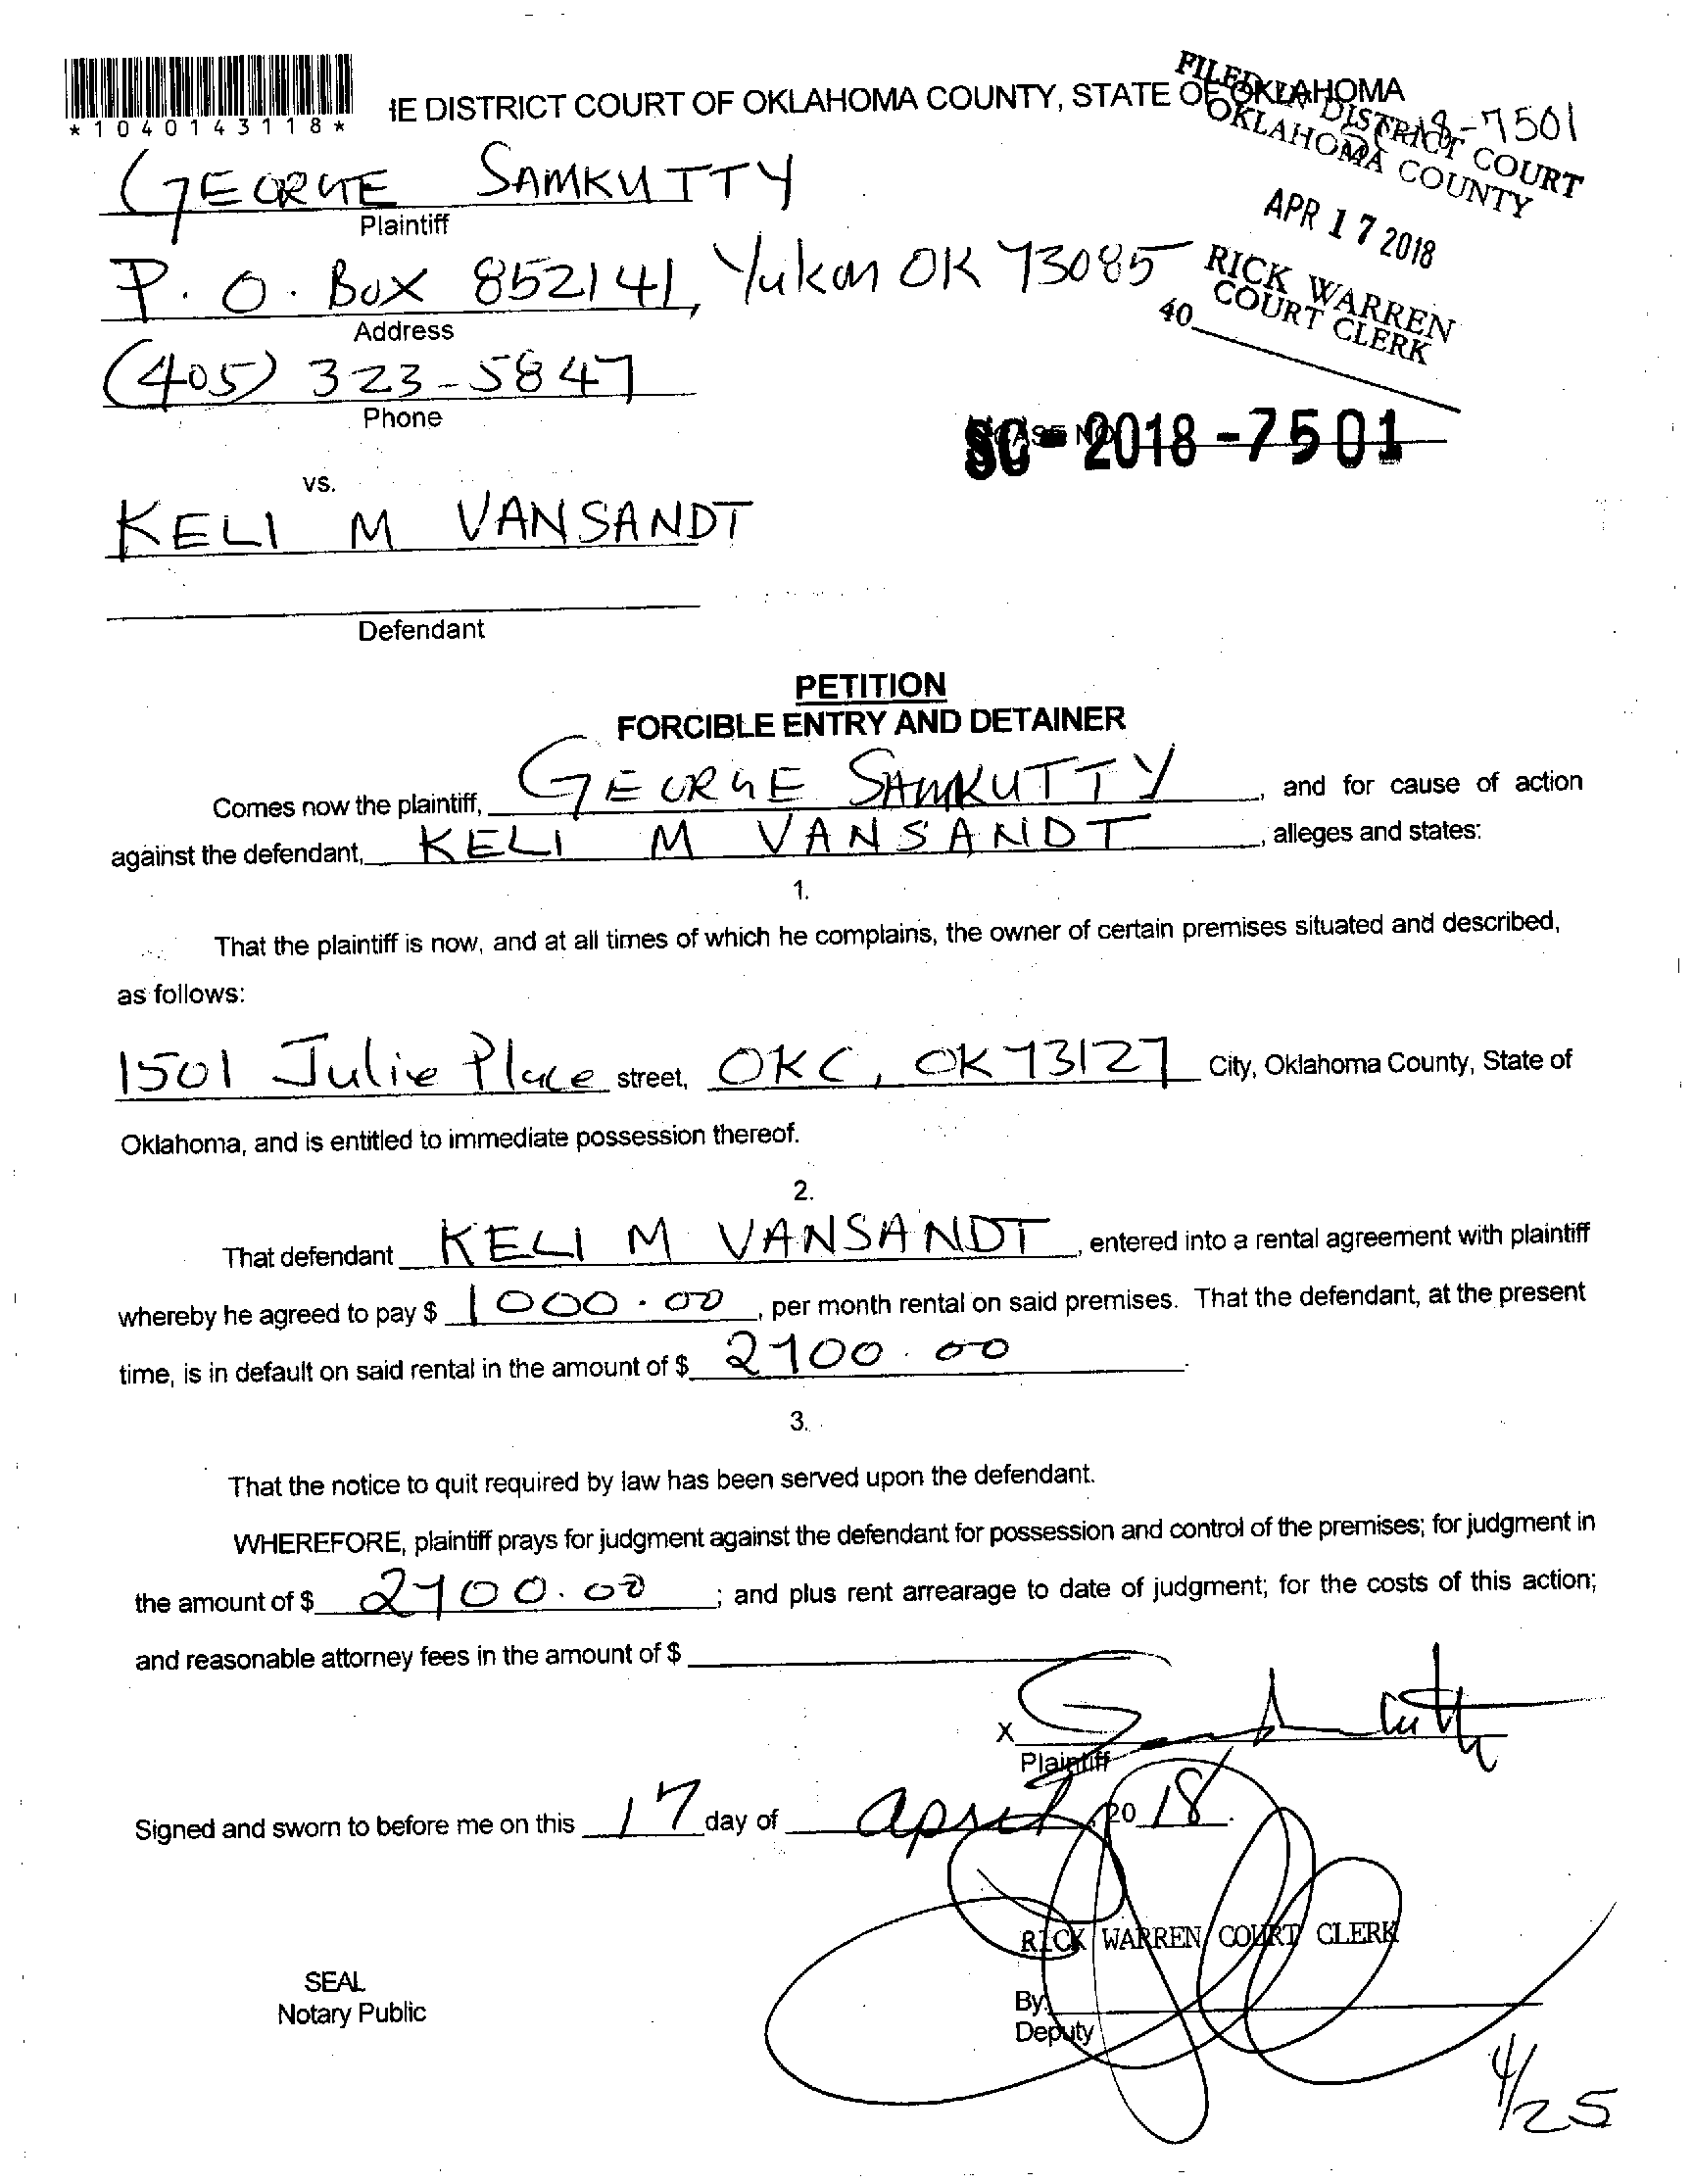 *1040143118*
IE DISTRICT COURT OF OKLAHOMA COUNTY, STATE OF OKLAHOMA
FILED IN DISTRICT COURT
OKLAHOMA COUNTY
-7501
APR 17 2018
RICK WARREN
COURT CLERK
40
GEORGE SAMKUTTY
Plaintiff
P. O. BOX 852141, Yukon OK 73085
Address
(405) 323-5847
Phone
CASE NO.
SC-2018-7501
vs.
KELI M VANSANDT
Defendant
PETITION
FORCIBLE ENTRY AND DETAINER
Comes now the plaintiff, GEORGE SAMKUTTY, and for cause of action
against the defendant, KELI M VANSANDT, alleges and states:
1.
That the plaintiff is now, and at all times of which he complains, the owner of certain premises situated and described,
as follows:
1501 Julie Place street, OKC, OK 73127 City, Oklahoma County, State of
Oklahoma, and is entitled to immediate possession thereof.
2.
That defendant KELI M VANSANDT, entered into a rental agreement with plaintiff
whereby he agreed to pay $ 1000.00, per month rental on said premises. That the defendant, at the present
time, is in default on said rental in the amount of $ 2700.00
3.
That the notice to quit required by law has been served upon the defendant.
WHEREFORE, plaintiff prays for judgment against the defendant for possession and control of the premises; for judgment in
the amount of $ 2700.00; and plus rent arrearage to date of judgment; for the costs of this action;
and reasonable attorney fees in the amount of $
X
Plaintiff
Signed and sworn to before me on this 17 day of April, 20 18.
RICK WARREN COURT CLERK
SEAL
Notary Public
By:
Deputy
4/25